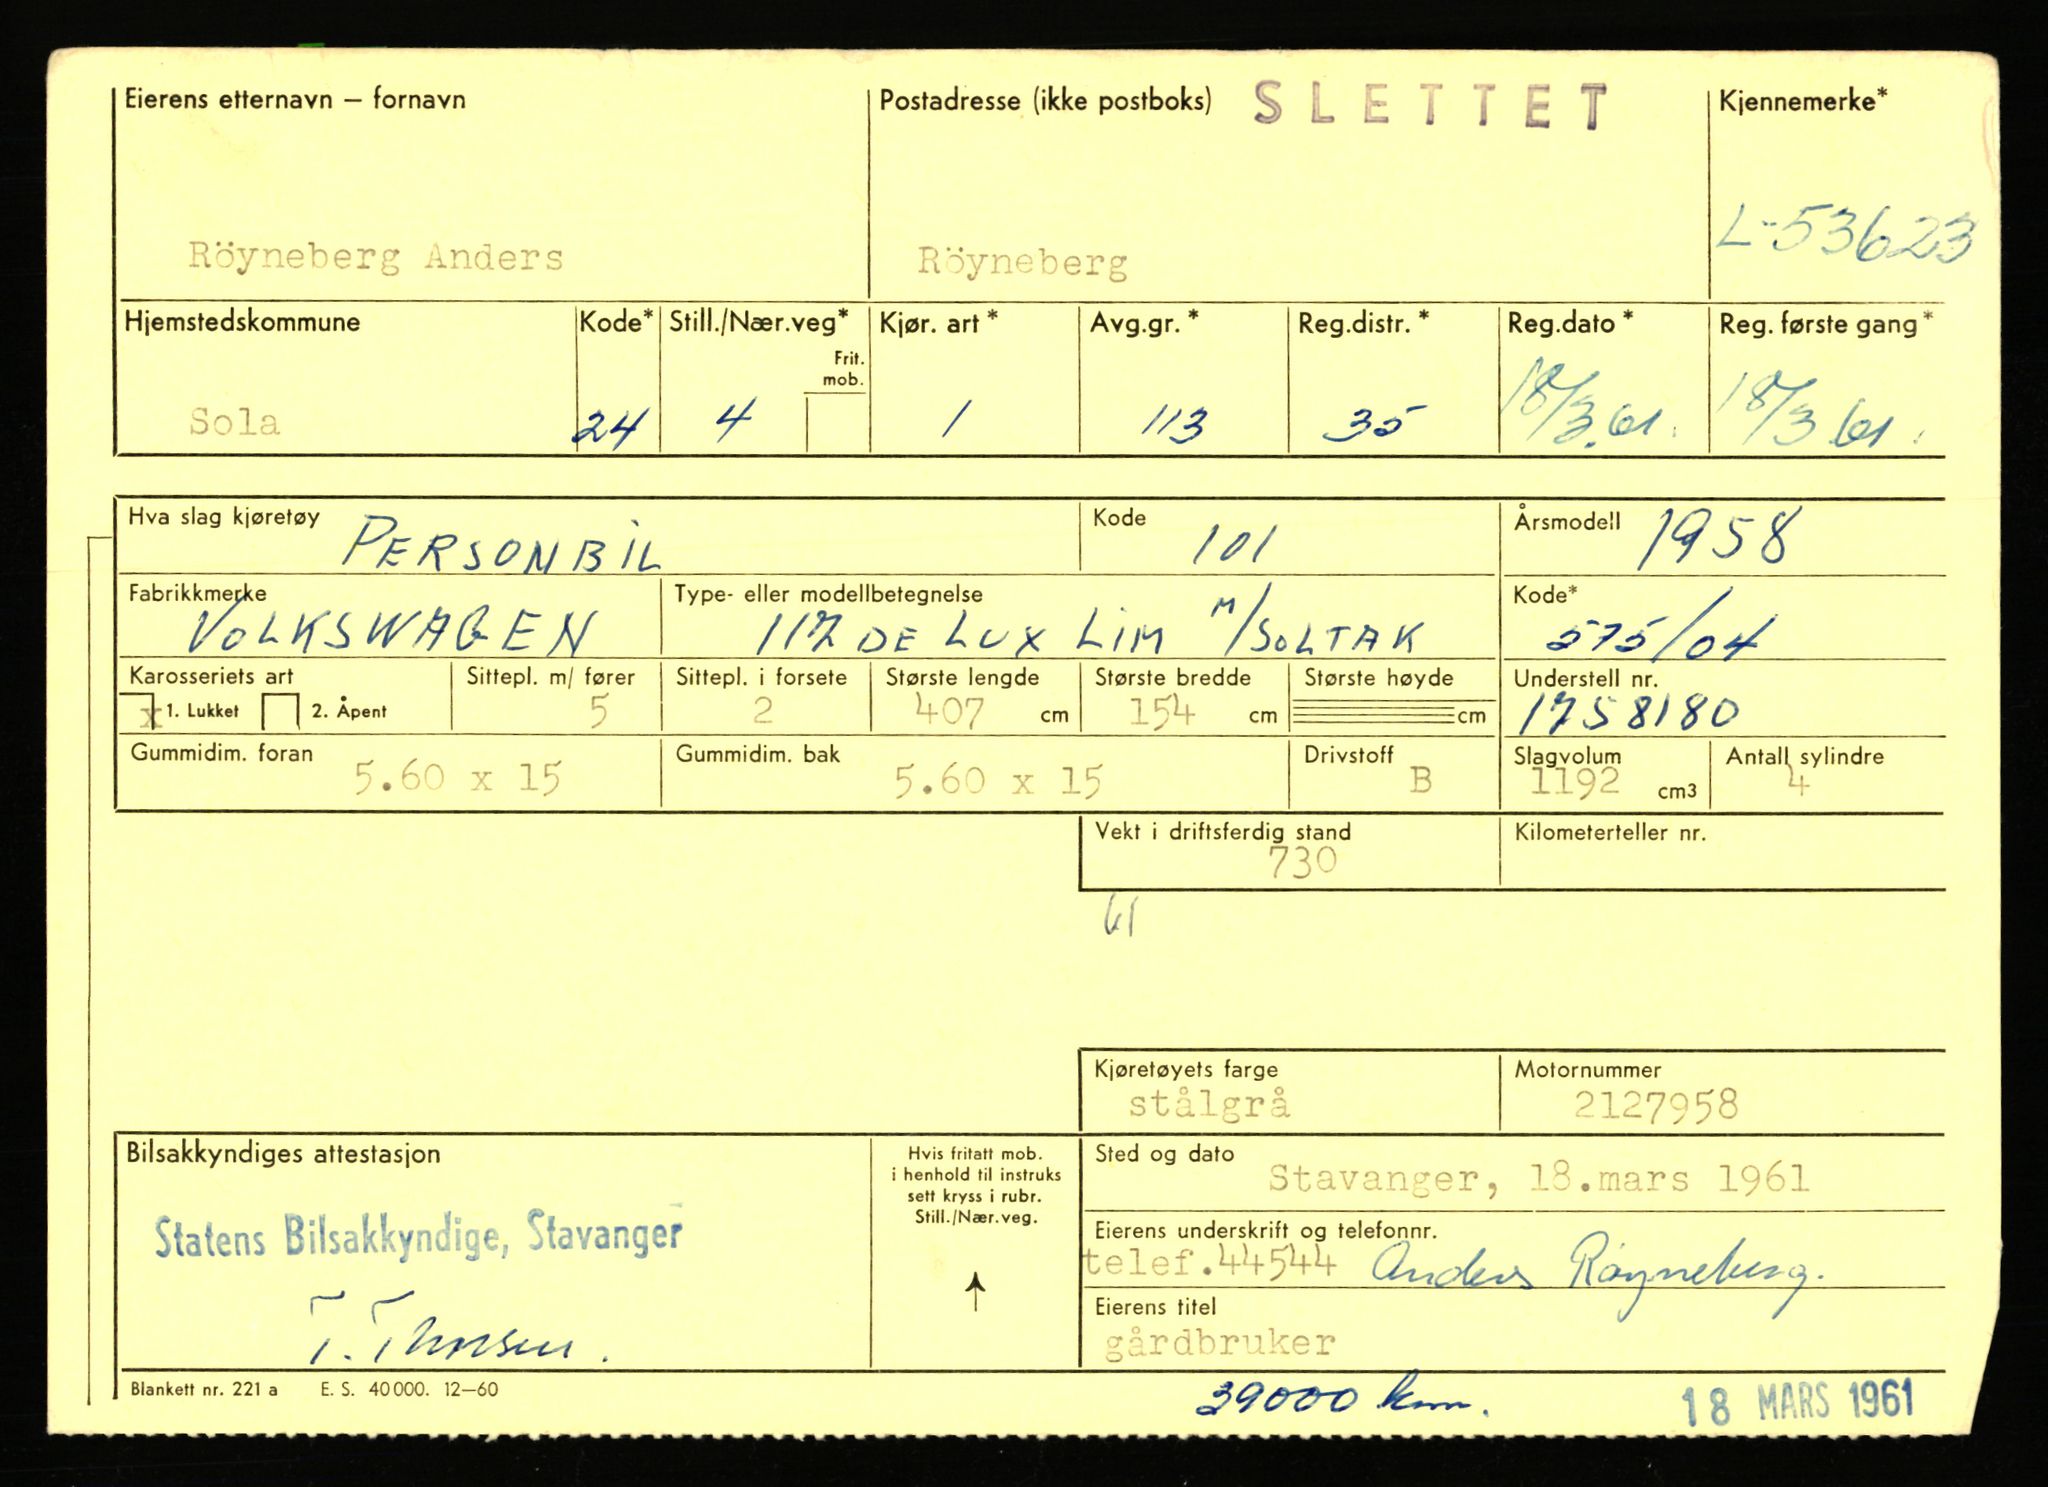 Eierens etternavn – fornavn
Postadresse (ikke postboks)
SLETTET
Kjennemerke*
Röyneberg Anders
Röyneberg
L-53623
Hjemstedskommune
Kode*
Still./Nær.veg*
Frit. mob.
Kjør. art*
Avg.gr.*
Reg.distr.*
Reg.dato*
Reg. første gang*
Sola
24
4
1
113
35
18/3.61.
18/3 61.
Hva slag kjøretøy
PERSONBIL
Kode
101
Årsmodell
1958
Fabrikkmerke
VOLKSWAGEN
Type- eller modellbetegnelse
117 DE LUX LIM M/SOLTAK
Kode*
575/04
Karosseriets art
x 1. Lukket
2. Åpent
Sittepl. m/ fører
5
Sittepl. i forsete
2
Største lengde
407 cm
Største bredde
154 cm
Største høyde
cm
Understell nr.
1758180
Gummidim. foran
5.60 x 15
Gummidim. bak
5.60 x 15
Drivstoff
B
Slagvolum
1192 cm3
Antall sylindre
4
Vekt i driftsferdig stand
730
Kilometerteller nr.
61
Kjøretøyets farge
stålgrå
Motornummer
2127958
Bilsakkyndiges attestasjon
Statens Bilsakkyndige, Stavanger
T. Thorsen.
Hvis fritatt mob.
i henhold til instruks
sett kryss i rubr.
Still./Nær.veg.
Sted og dato
Stavanger, 18.mars 1961
Eierens underskrift og telefonnr.
telef.44544 Anders Röyneberg.
Eierens titel
gårdbruker
Blankett nr. 221 a E. S. 40 000. 12–60
39000 km.
18 MARS 1961